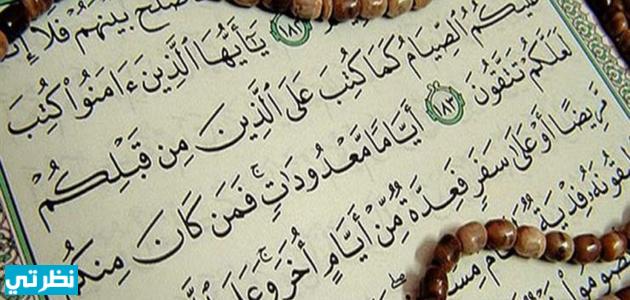 صْلَحَ بَيْنَهُمْ فَلَآ إِ
١٨٢ يَٰٓأَيُّهَا ٱلَّذِينَ ءَامَنُوا۟ كُتِبَ
لَيْكُمُ ٱلصِّيَامُ كَمَا كُتِبَ عَلَى ٱلَّذِينَ مِن قَبْلِكُمْ
لَعَلَّكُمْ تَتَّقُونَ ١٨٣ أَيَّامًا مَّعْدُودَٰتٍ ۚ فَمَن كَانَ مِنكُم
مَّرِيضًا أَوْ عَلَىٰ سَفَرٍ فَعِدَّةٌ مِّنْ أَيَّامٍ أُخَرَ ۚ وَعَلَى
يقُونَهُۥ فِدْيَةٌ
صُومُوا۟
نظرتي